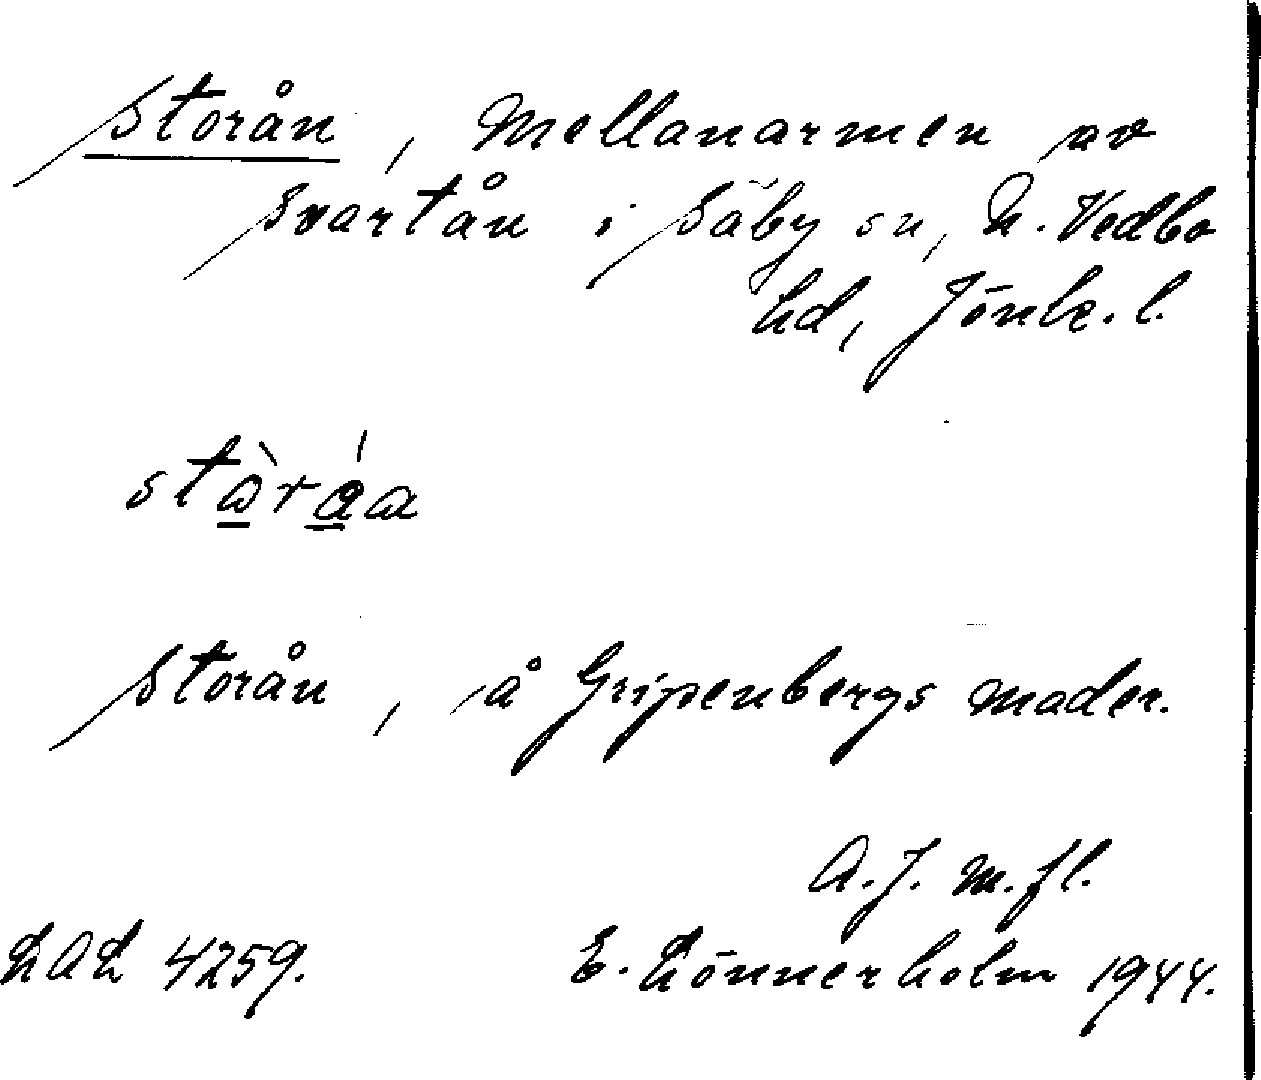 Storån, Mellanarmen av
Svartån i Säby sn, N. Vedbo
hd, Jönk. l.
Storån, å Gripenbergs mader.
A.J. m.fl.
LAL 4259.
E. Lönnerholm 1944.